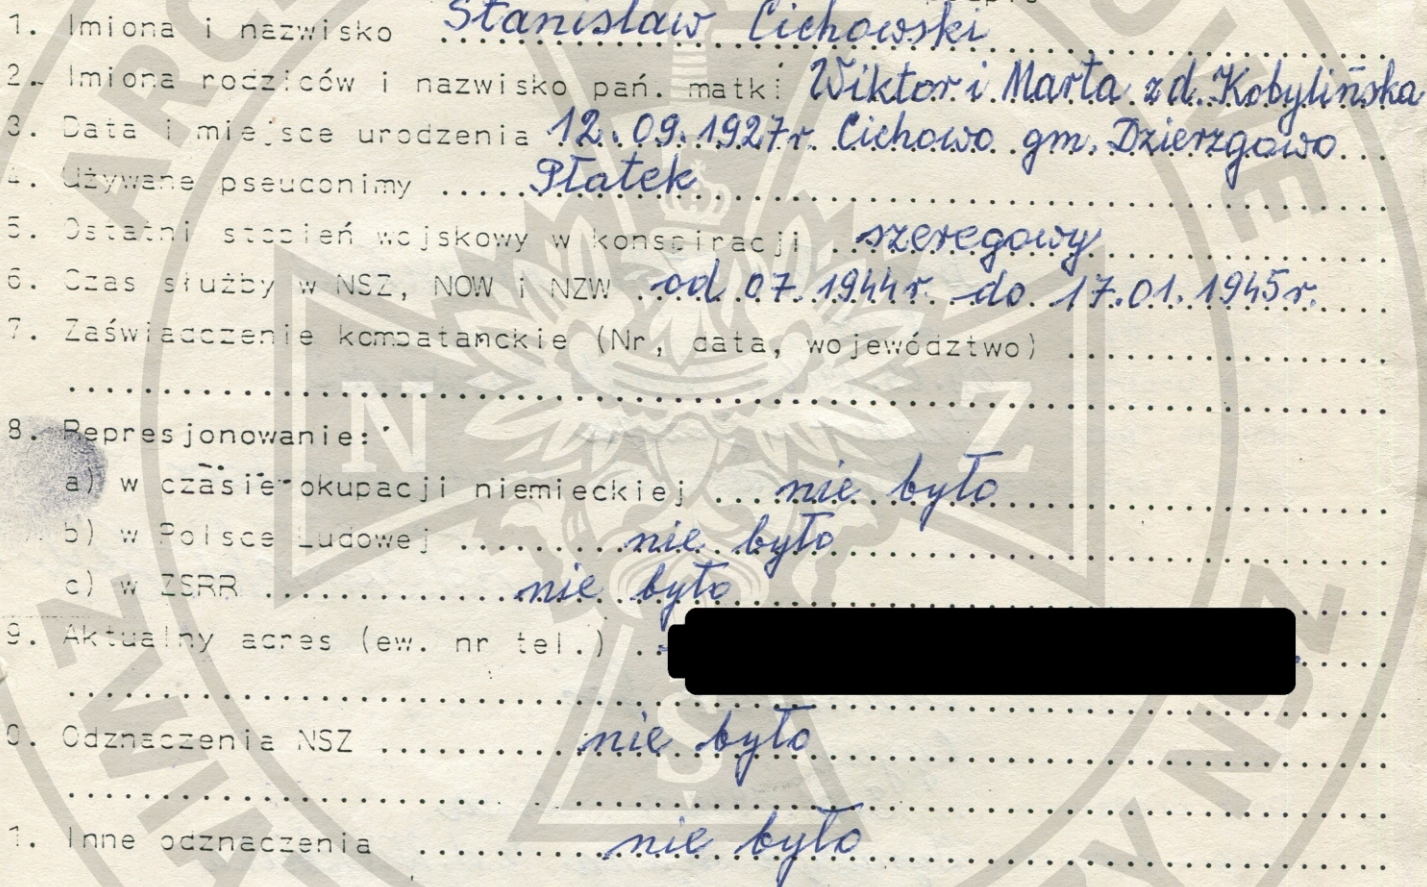 1. Imiona i nazwisko Stanisław Cichowski
2. Imiona rodziców i nazwisko pań. matki Wiktor i Marta z d. Kobylińska
3. Data i miejsce urodzenia 12.09.1927r. Cichowo gm. Dzierzgowo
4. Używane pseudonimy Płatek
5. Ostatni stopień wojskowy w konspiracji szeregowy
6. Czas służby w NSZ, NOW i NZW od 07.1944r. do 17.01.1945r.
7. Zaświadczenie kombatanckie (Nr, data, województwo)
8. Represjonowanie:
a) w czasie okupacji niemieckiej nie było
b) w Polsce Ludowej nie było
c) w ZSRR nie było
9. Aktualny adres (ew. nr tel.)
0. Odznaczenia NSZ nie było
1. Inne odznaczenia nie było
N Z
S